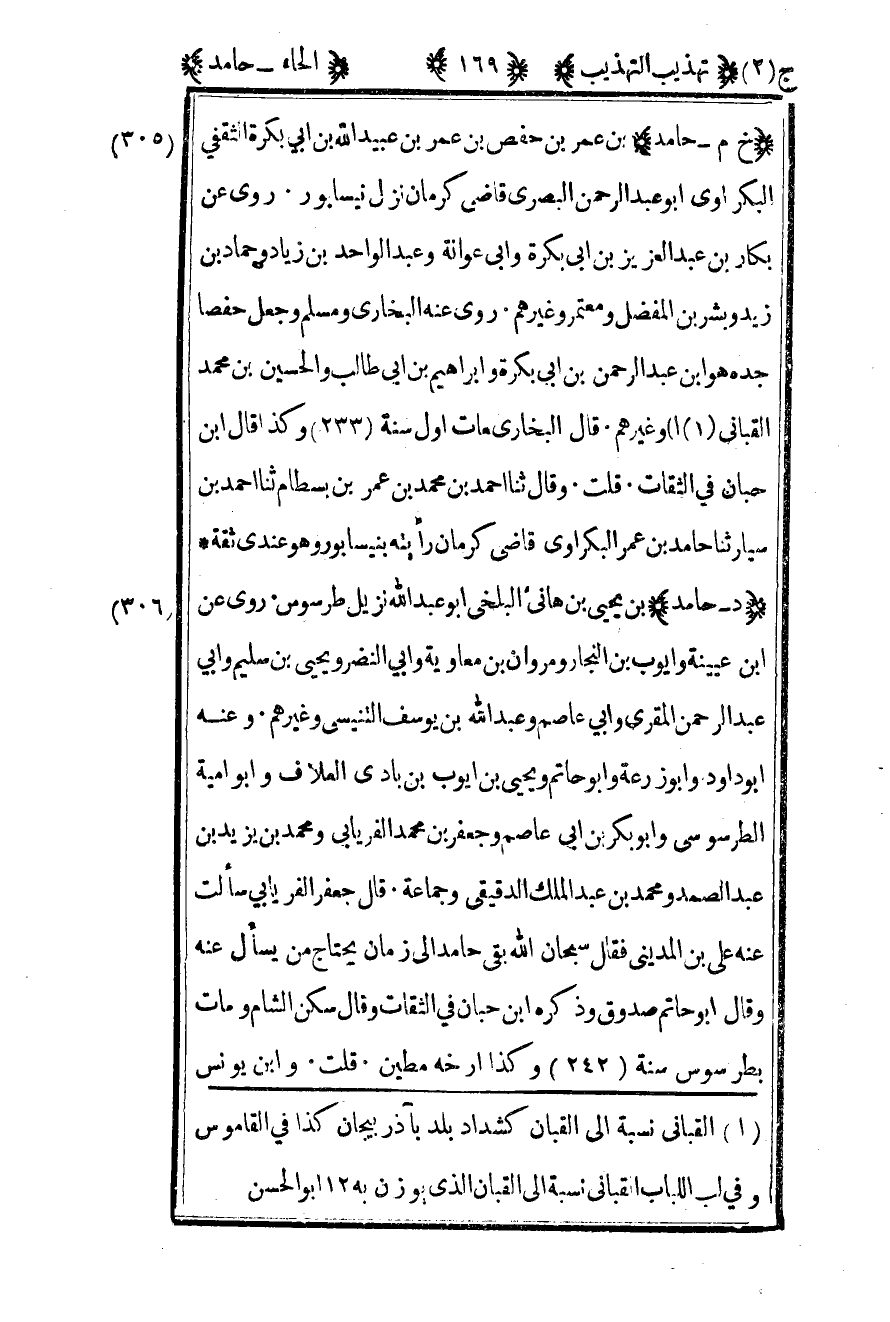 ج (٢) ﴿ تهذيب التهذيب ﴾ ﴿ ١٦٩ ﴾ ﴿ الحاء ـ حامد ﴾
﴿خ م ـ حامد﴾ بن عمر بن حفص بن عمر بن عبيد الله بن ابي بكرة الثقفي (٣٠٥)
البكراوى ابو عبد الرحمن البصرى قاضى كرمان نزل نيسابور · روى عن
بكار بن عبد العزيز بن ابى بكرة وابى عوانة وعبد الواحد بن زياد وحماد بن
زيد وبشر بن المفضل ومعتمر وغيرهم · روى عنه البخارى ومسلم وجعل حفصا
جده هو ابن عبد الرحمن بن ابى بكرة وابراهيم بن ابى طالب والحسين بن محمد
القبانى (١) ا) وغيرهم · قال البخارى مات اول سنة (٢٣٣) وكذا قال ابن
حبان في الثقات · قلت · وقال ثنا احمد بن محمد بن عمر بن بسطام ثنا احمد بن
سيار ثنا حامد بن عمر البكراوى قاضى كرمان رأيته بنيسابور وهو عندى ثقة *
﴿د ـ حامد﴾ بن يحيى بن هانئ البلخى ابو عبد الله نزيل طرسوس · روى عن (٣٠٦)
ابن عيينة وايوب بن النجار ومروان بن معاوية وابي النضر ويحيى بن سليم وابي
عبد الرحمن المقرى وابي عاصم وعبد الله بن يوسف التنيسى وغيرهم · وعنه
ابو داود وابو زرعة وابو حاتم ويحيى بن ايوب بن بادى العلاف وابو امية
الطرسوسى وابو بكر بن ابى عاصم وجعفر بن محمد الفريابى ومحمد بن يزيد بن
عبد الصمد ومحمد بن عبد الملك الدقيقى وجماعة · قال جعفر الفريابي سألت
عنه على بن المدينى فقال سبحان الله بقى حامد الى زمان يحتاج من يسأل عنه
وقال ابو حاتم صدوق وذكره ابن حبان في الثقات وقال سكن الشام ومات
بطرسوس سنة (٢٤٢) وكذا ارخه مطين · قلت · وابن يونس
(١) القبانى نسبة الى القبان كشداد بلد بآذربيجان كذا في القاموس
و في لب اللباب القبانى نسبة الى القبان الذى يوزن به ١٢ ابو الحسن